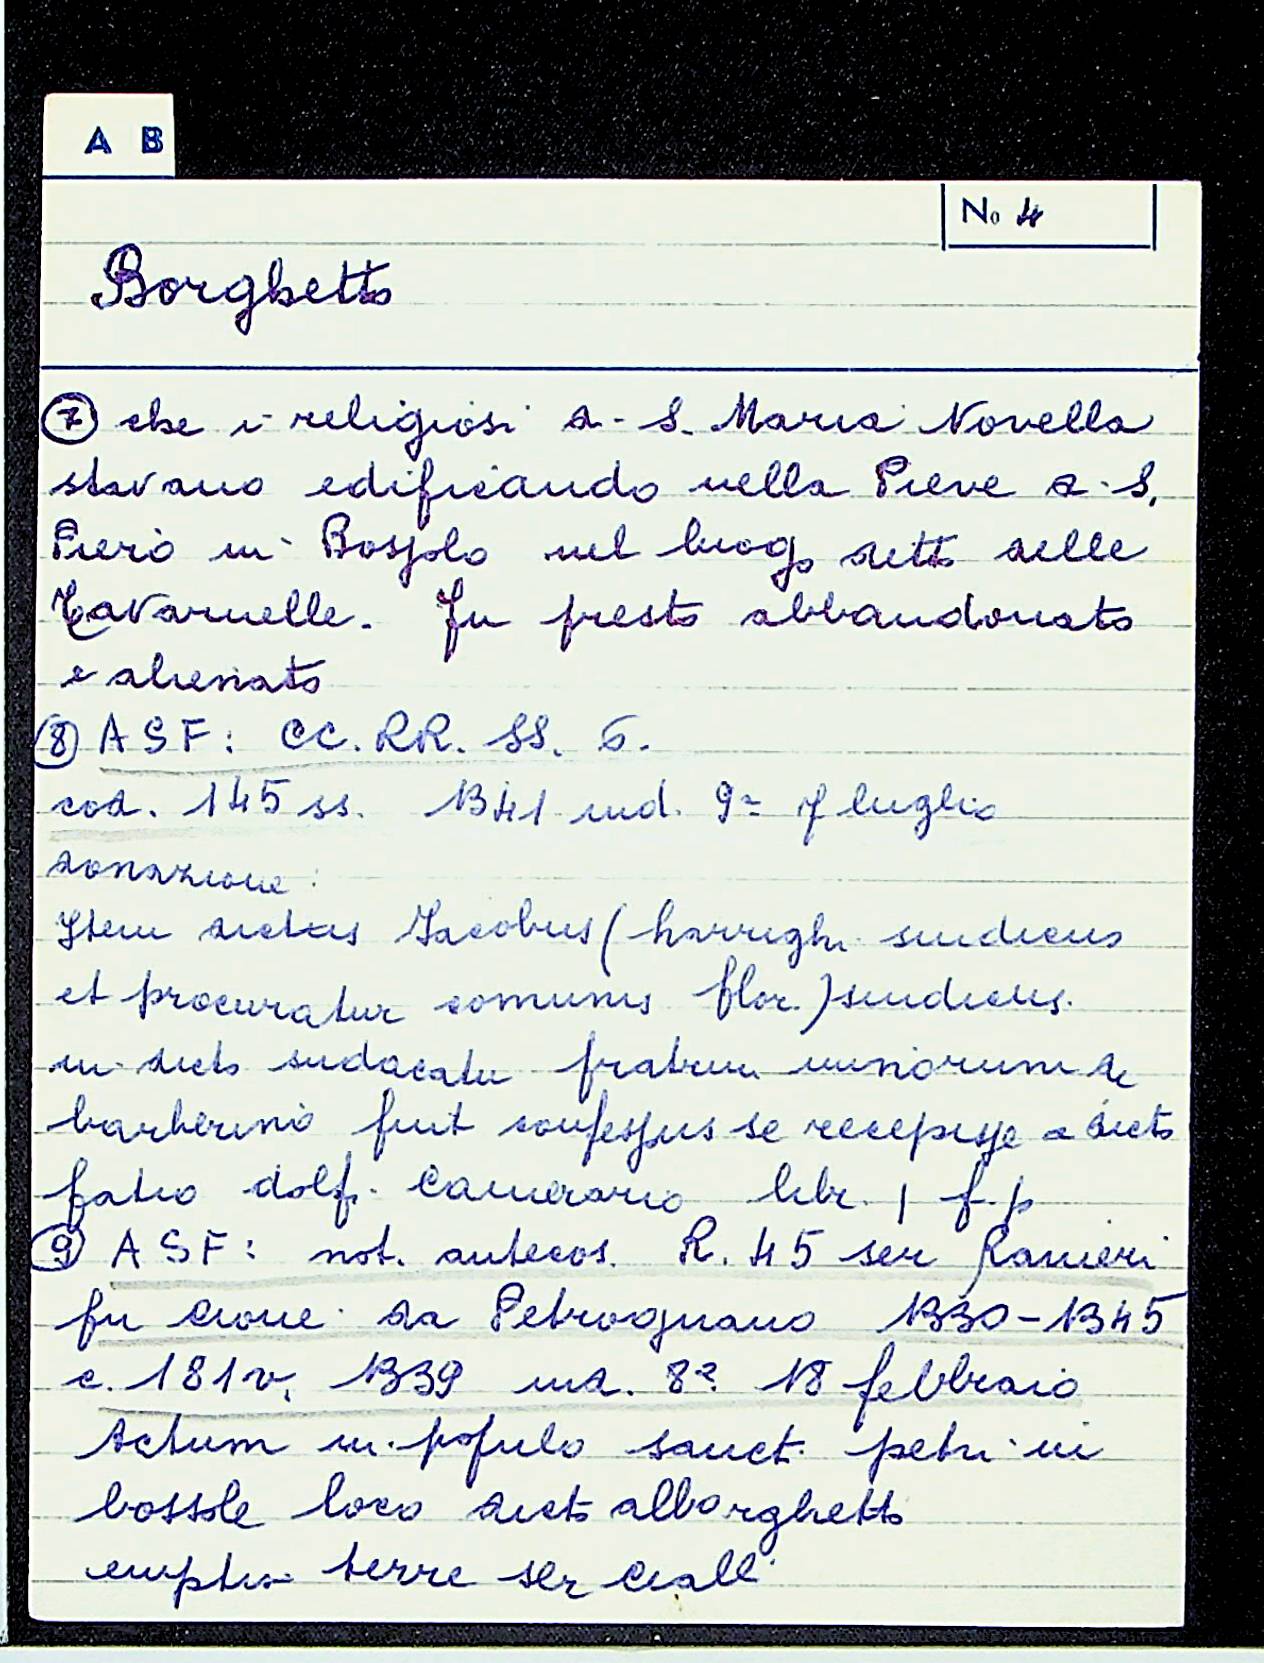 A B
No 4
Borghetto
7 che i religiosi di S. Maria Novella
stavano edificando nella Pieve di S.
Piero in Bossolo nel luogo detto delle
Tavarnelle. Fu presto abbandonato
e alienato
8 ASF: CC. RR. SS. 6.
cod. 145 ss. 1341 ind. 9ª 7 luglio
donazione:
Item dictus Iacobus (harrighi sindicus
et procuratur comunis flor.) sindicus
in dicto sindacatu fratrum minorum de
barberino fuit confessus se recepisse a dicto
fatio dolf. Camerario libr. 1 f.p
9 ASF: not. antecos. R. 45 ser Ranieri
fu Cione da Petrognano 1330-1345
c. 181v. 1339 ind. 8ª 18 febbraio
Actum in populo sancti petri in
bossole loco dicto alborghetto
emptio terre ser